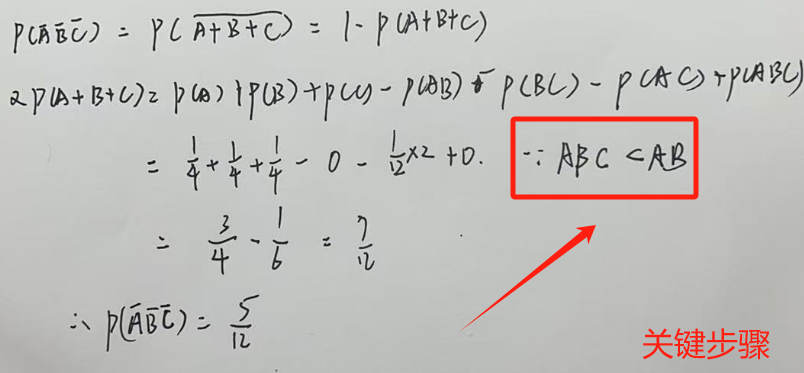 P(ĀB̄C̄) = P(\overline{A+B+C}) = 1 - P(A+B+C)
又P(A+B+C)= P(A)+P(B)+P(C)-P(AB)-P(BC)-P(AC)+P(ABC)
= 1/4 + 1/4 + 1/4 - 0 - 1/12 ×2 +0. ∵ ABC ⊂ AB
= 3/4 - 1/6 = 7/12
∴ P(ĀB̄C̄) = 5/12
关键步骤